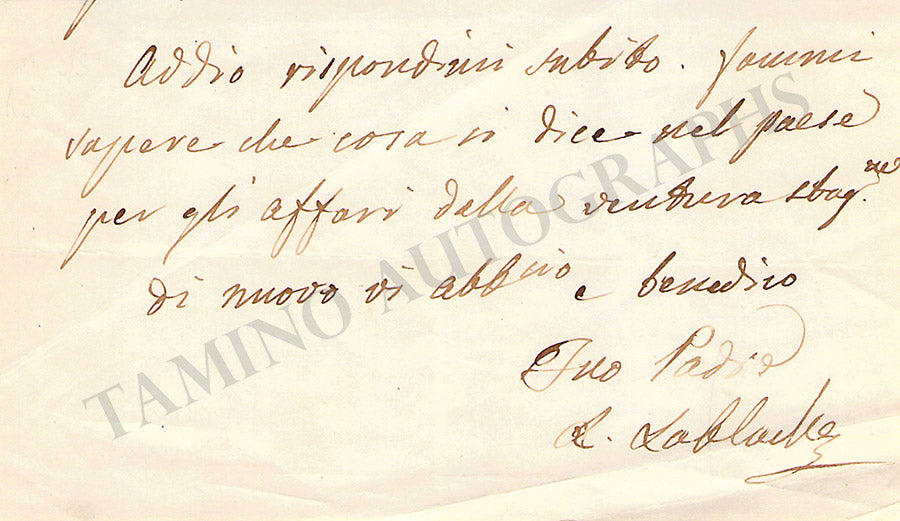 Addio rispondimi subito. Fammi
sapere che cosa si dice nel paese
per gli affari della ventura stag.ne
di nuovo vi abb.cio e benedico
Tuo Padre
L. Lablache
TAMINO AUTOGRAPHS